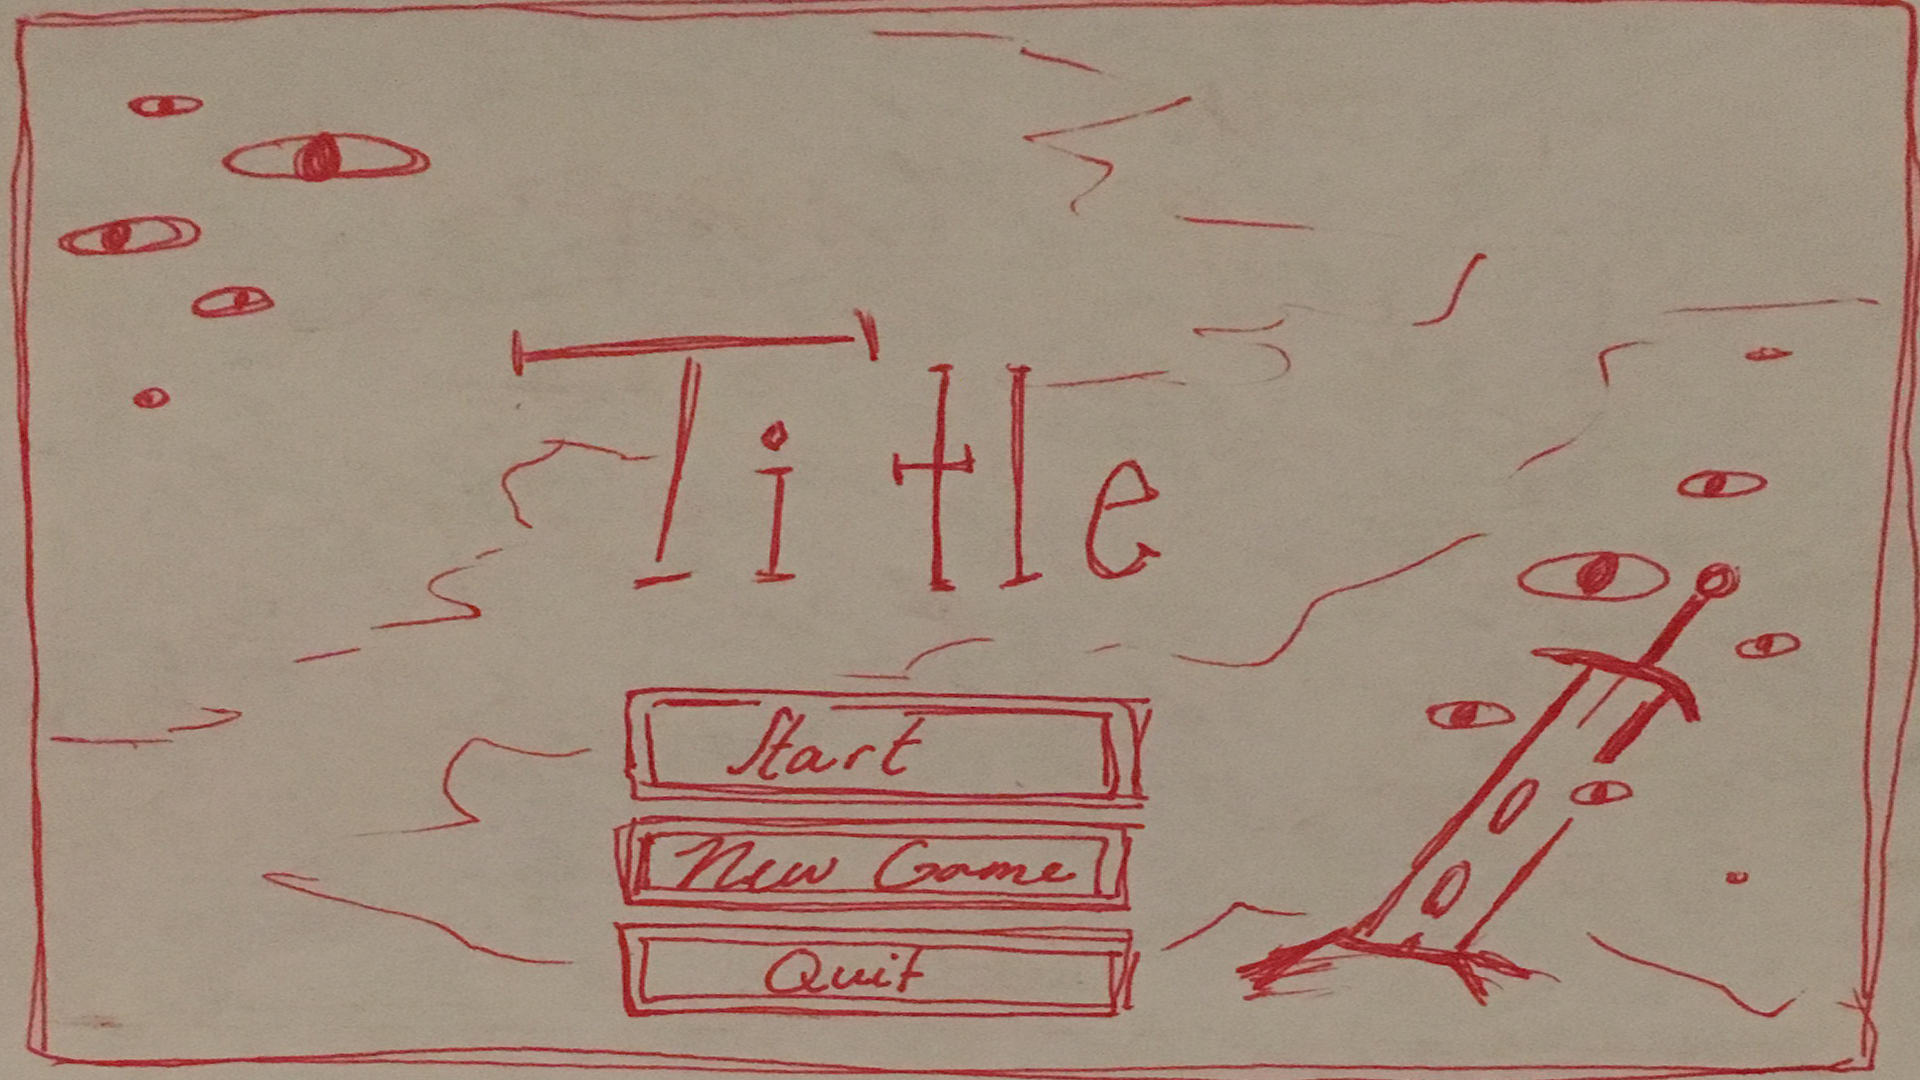 Title
Start
New Game
Quit